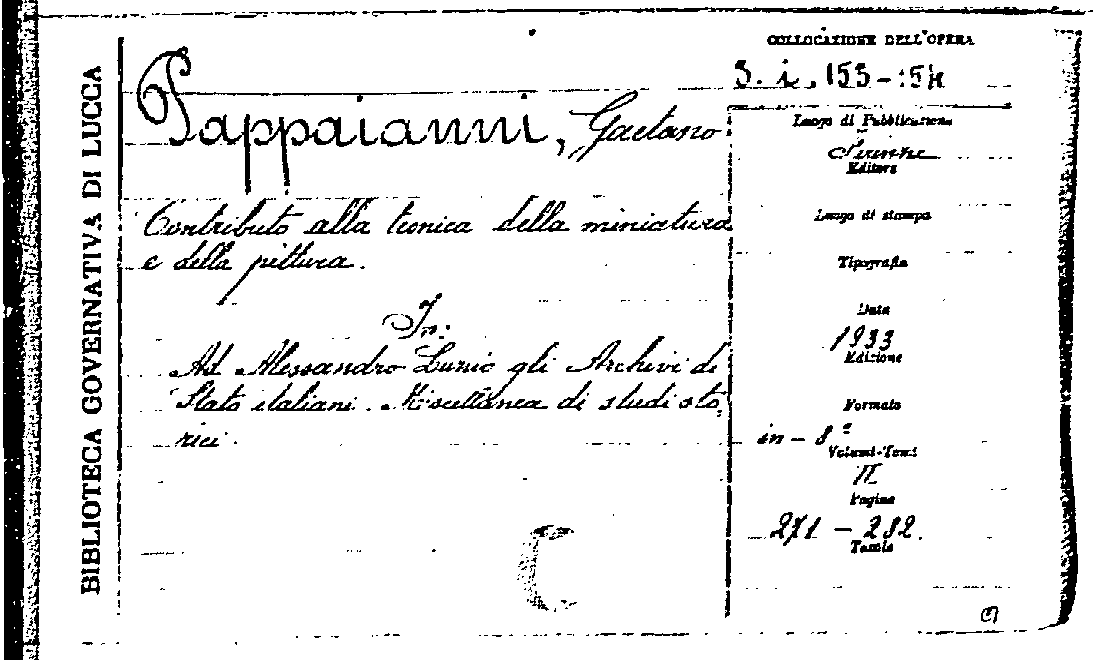 BIBLIOTECA GOVERNATIVA DI LUCCA
Pappaianni, Gaetano
Contributo alla tecnica della miniatura
e della pittura.
In:
Ad Alessandro Luzio gli Archivi di
Stato italiani. Miscellanea di studi sto,
rici.
COLLOCAZIONE DELL'OPERA
3. i. 153-154
Luogo di Pubblicazione
Firenze
Editore
Luogo di stampa
Tipografia
Data
1933
Edizione
Formato
in-8º
Volumi-Tomi
II
Pagine
271-282.
Tavole
C